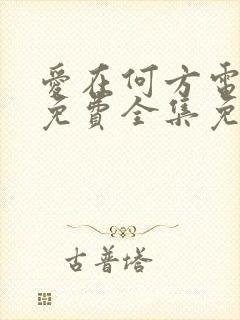 愛在何方電
免費全集免
古普塔